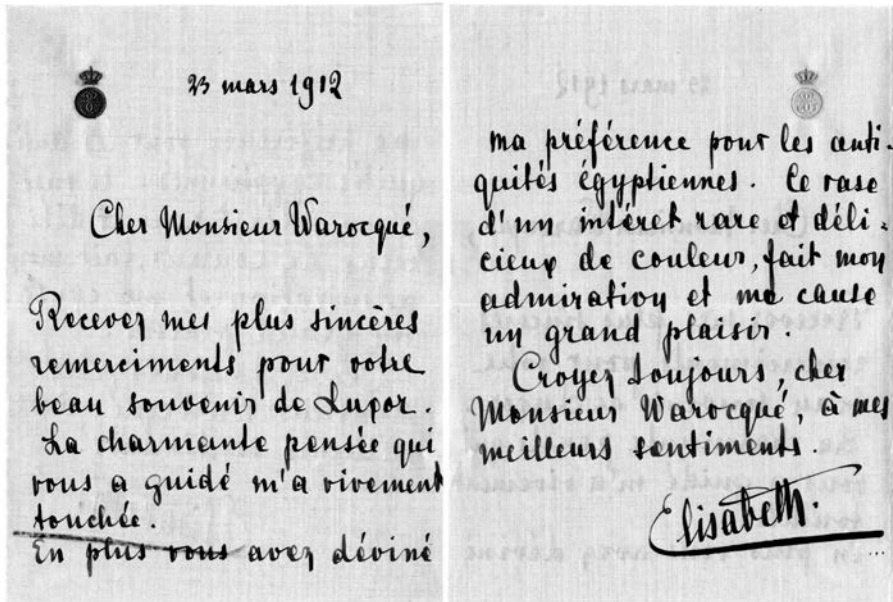 23 mars 1912
Cher Monsieur Warocqué,
Recevez mes plus sincères
remerciments pour votre
beau souvenir de Luxor.
La charmante pensée qui
vous a guidé m'a vivement
touchée.
En plus vous avez déviné
ma préférence pour les anti-
quités égyptiennes. Ce vase
d'un intéret rare et déli-
cieux de couleur, fait mon
admiration et me cause
un grand plaisir.
Croyez toujours, cher
Monsieur Warocqué, à mes
meilleurs sentiments.
Elisabeth.
...